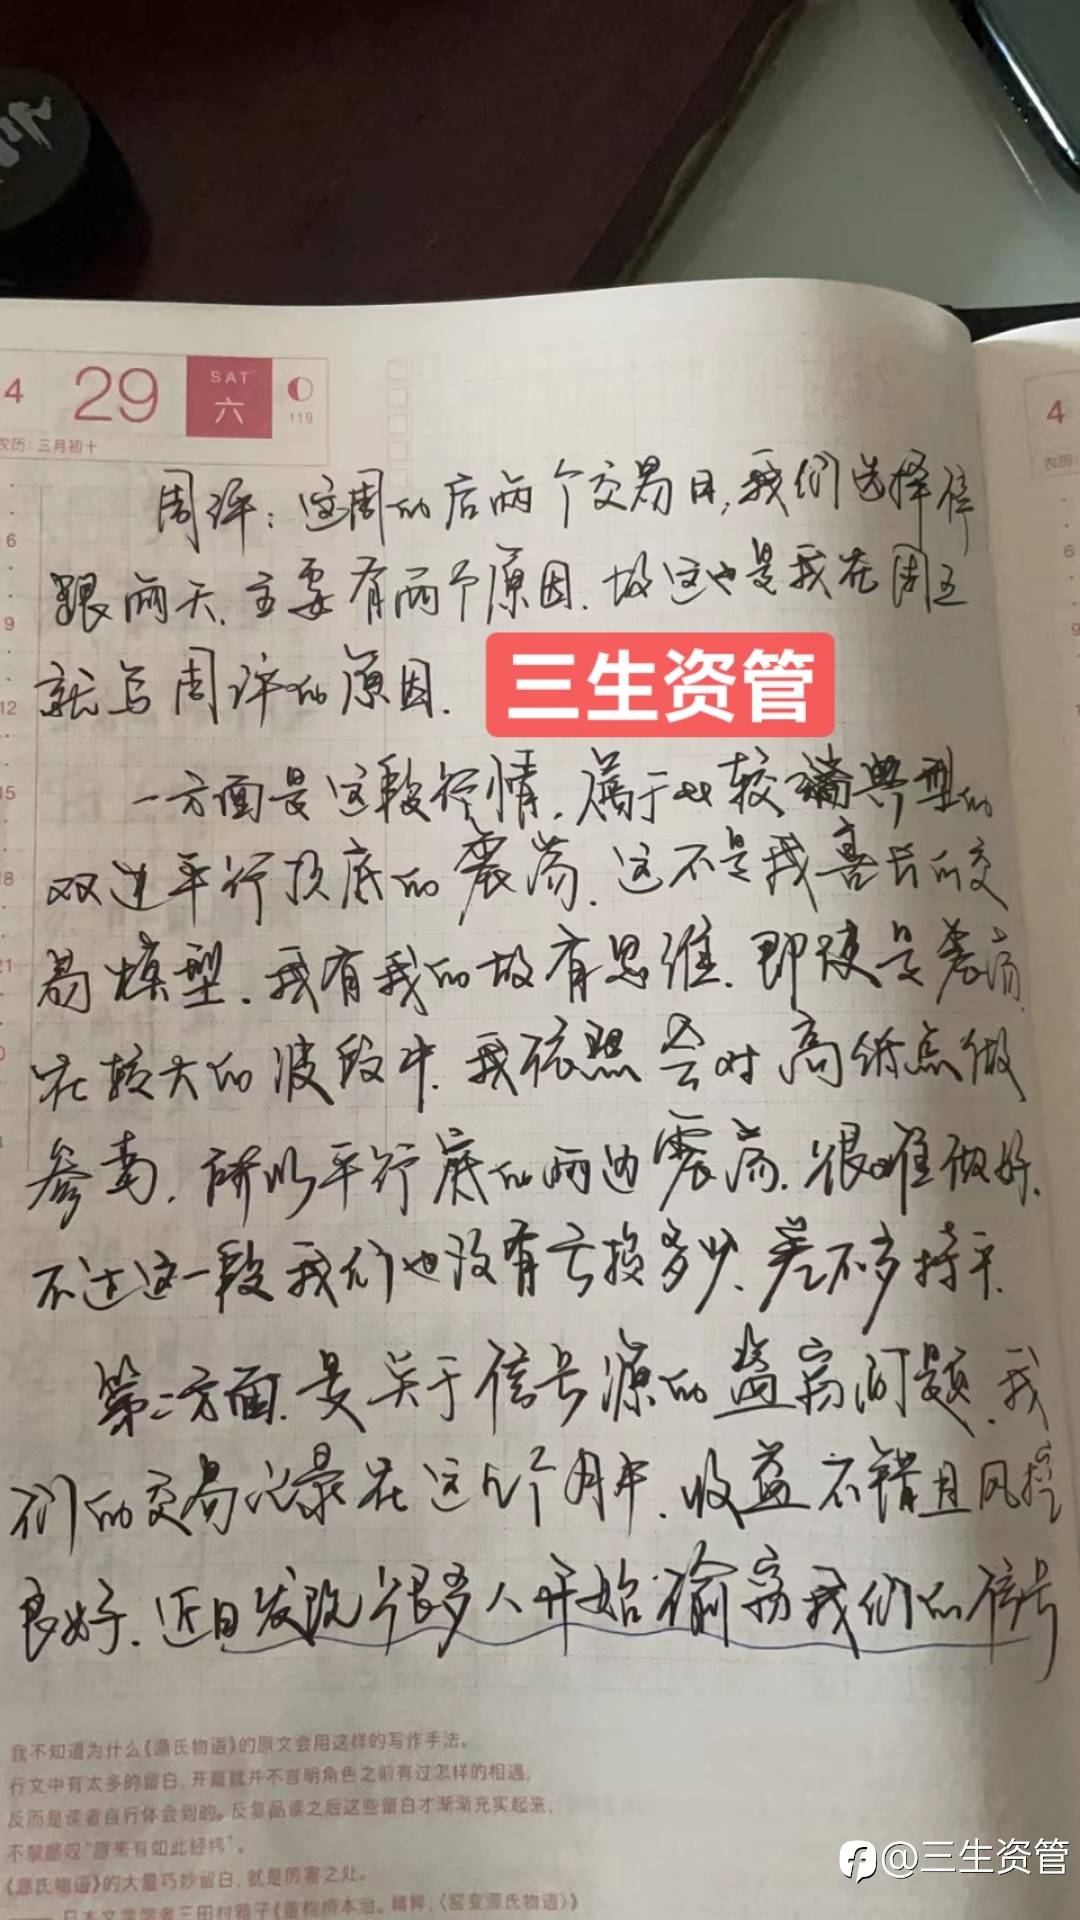 4 29 SAT 六 119
农历:三月初十
4
农历:
6
9
12
15
18
21
周评：这周的后两个交易日，我们选择停
跟两天，主要有两个原因，故这也是我在周五
就写周评的原因．
三生资管
一方面是这段行情，属于比较典型的
双边平行顶底的震荡．这不是我喜长的交
易模型．我有我的故有思维．即使是震荡．
在较大的波段中．我依照会对高低点做
参考，所以平行底的两边震荡．很难做好．
不过这一段我们也没有亏损多少、差不多持平．
第二方面．是关于信号源的盗窃问题．我
们的交易记录在这几个月中．收益不错且风控
良好．近日发现很多人开始偷窃我们的信号
我不知道为什么《源氏物语》的原文会用这样的写作手法。
行文中有太多的留白，开篇就并不言明角色之前有过怎样的相遇，
反而是读者自行体会到的。反复品读之后这些留白才渐渐充实起来，
不禁感叹“原来有如此经纬”。
《源氏物语》的大量巧妙留白，就是厉害之处。
—— 日本文学学者三田村雅子《重构桥本治。精粹，〈窑变源氏物语〉》
@三生资管